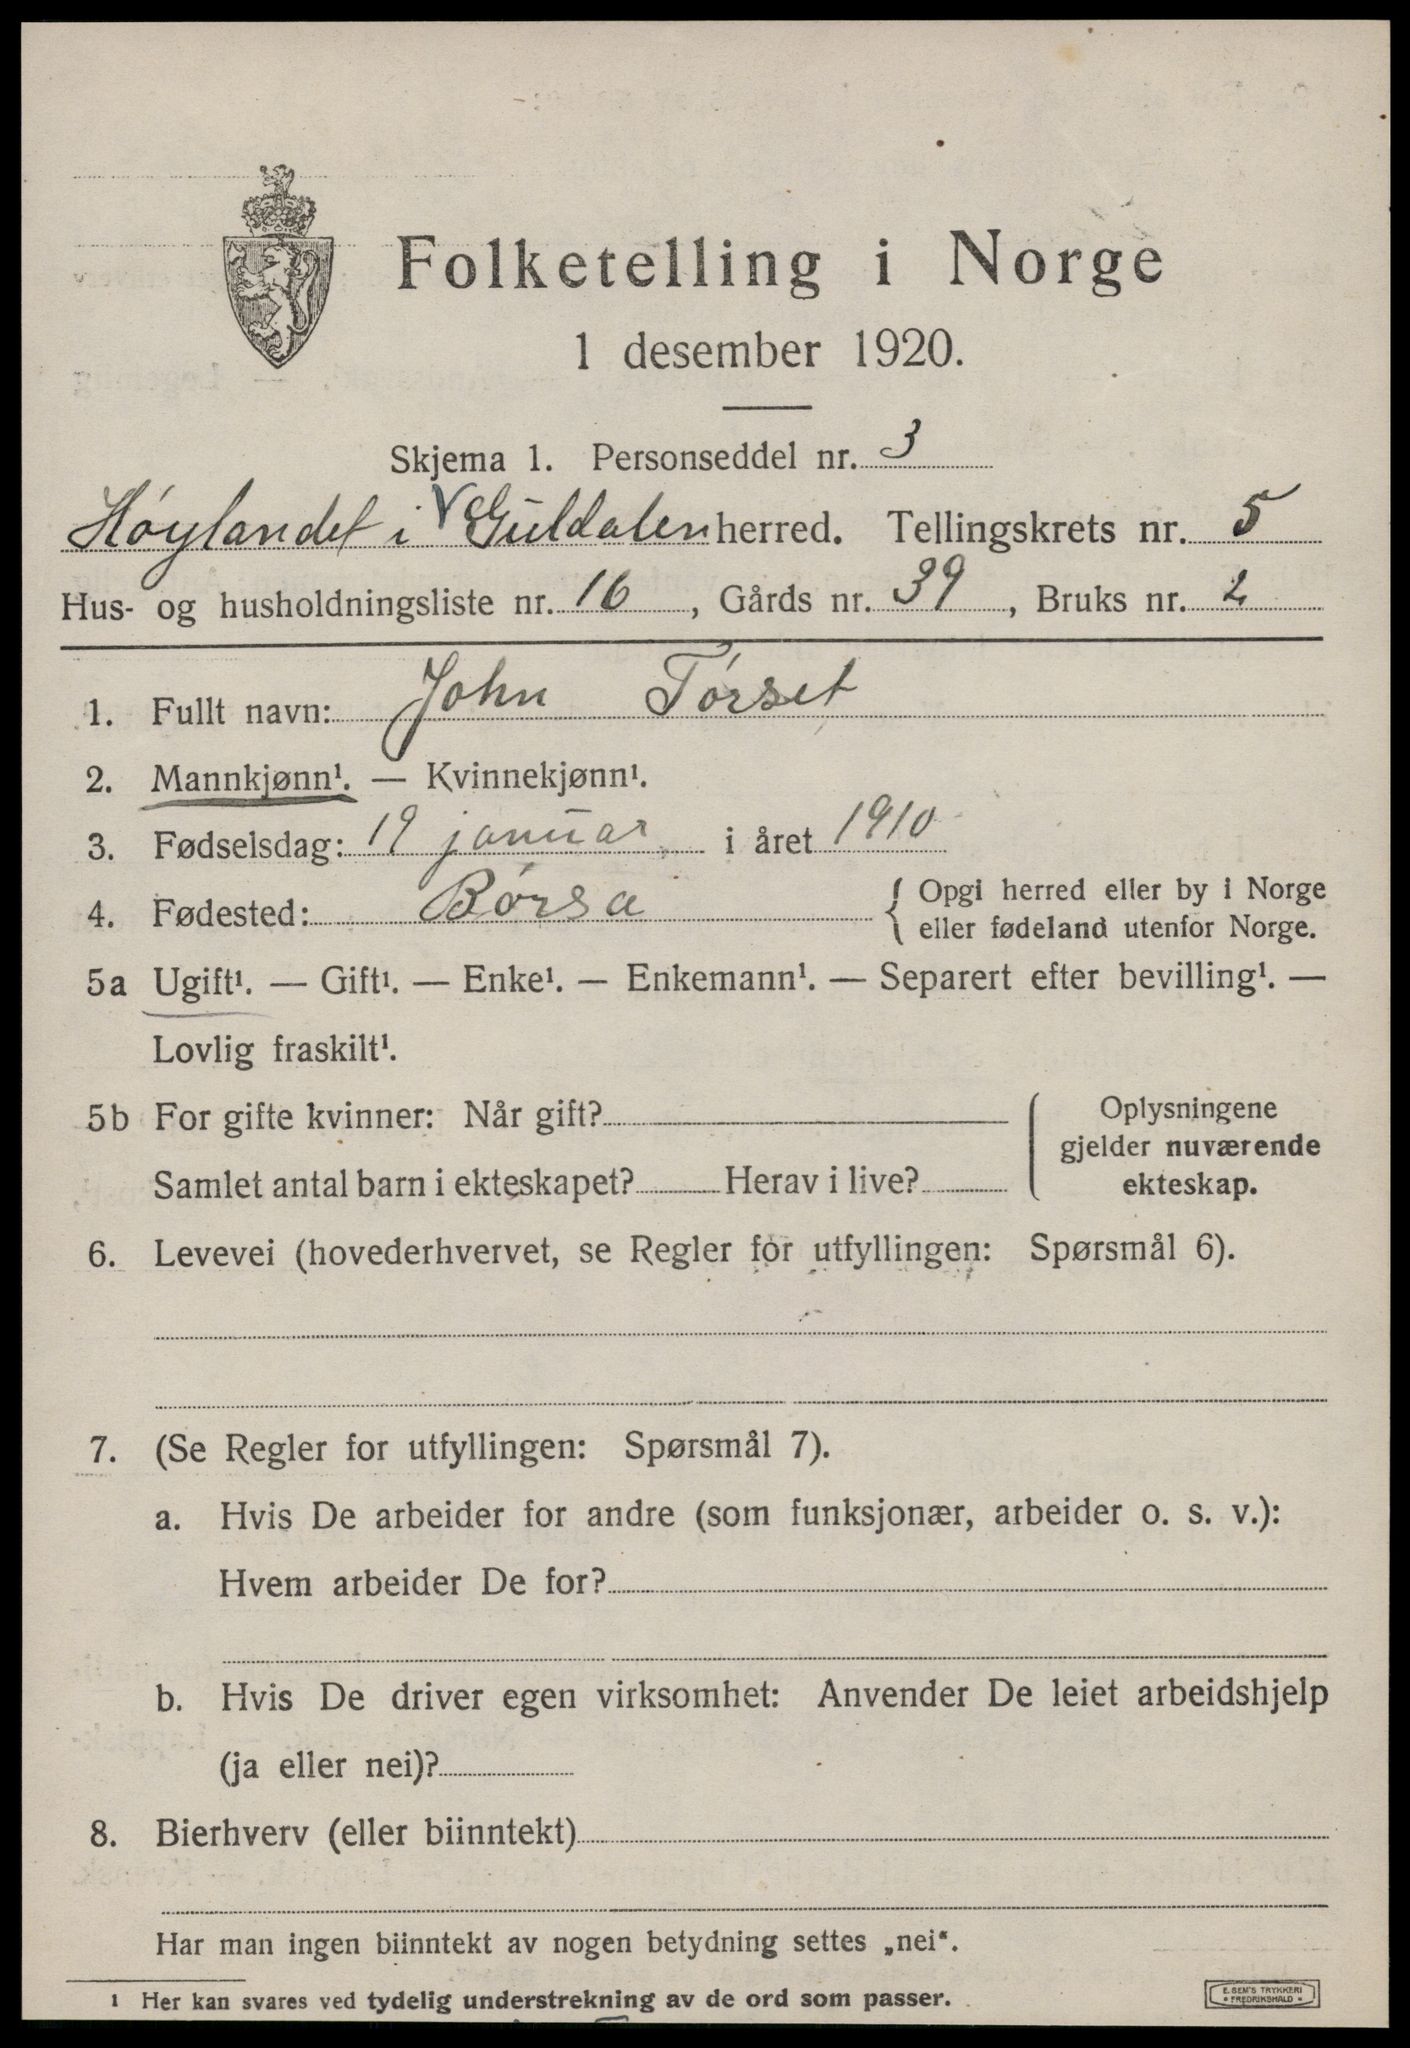 Folketelling i Norge
1 desember 1920.
Skjema 1. Personseddel nr. 3
Høylandet i V Guldalen herred. Tellingskrets nr. 5
Hus- og husholdningsliste nr. 16, Gårds nr. 39, Bruks nr. 2
1. Fullt navn: John Tørset
2. Mannkjønn¹. — Kvinnekjønn¹.
3. Fødselsdag: 19 januar i året 1910
4. Fødested: Børsa { Opgi herred eller by i Norge
eller fødeland utenfor Norge.
5a Ugift¹. — Gift¹. — Enke¹. — Enkemann¹. — Separert efter bevilling¹. —
Lovlig fraskilt¹.
5b For gifte kvinner: Når gift?
Samlet antal barn i ekteskapet? Herav i live?
Oplysningene
gjelder nuværende
ekteskap.
6. Levevei (hovederhvervet, se Regler for utfyllingen: Spørsmål 6).
7. (Se Regler for utfyllingen: Spørsmål 7).
a. Hvis De arbeider for andre (som funksjonær, arbeider o. s. v.):
Hvem arbeider De for?
b. Hvis De driver egen virksomhet: Anvender De leiet arbeidshjelp
(ja eller nei)?
8. Bierhverv (eller biinntekt)
Har man ingen biinntekt av nogen betydning settes „nei“.
¹ Her kan svares ved tydelig understrekning av de ord som passer.
E. SEM'S TRYKKERI
• FREDRIKSHALD •